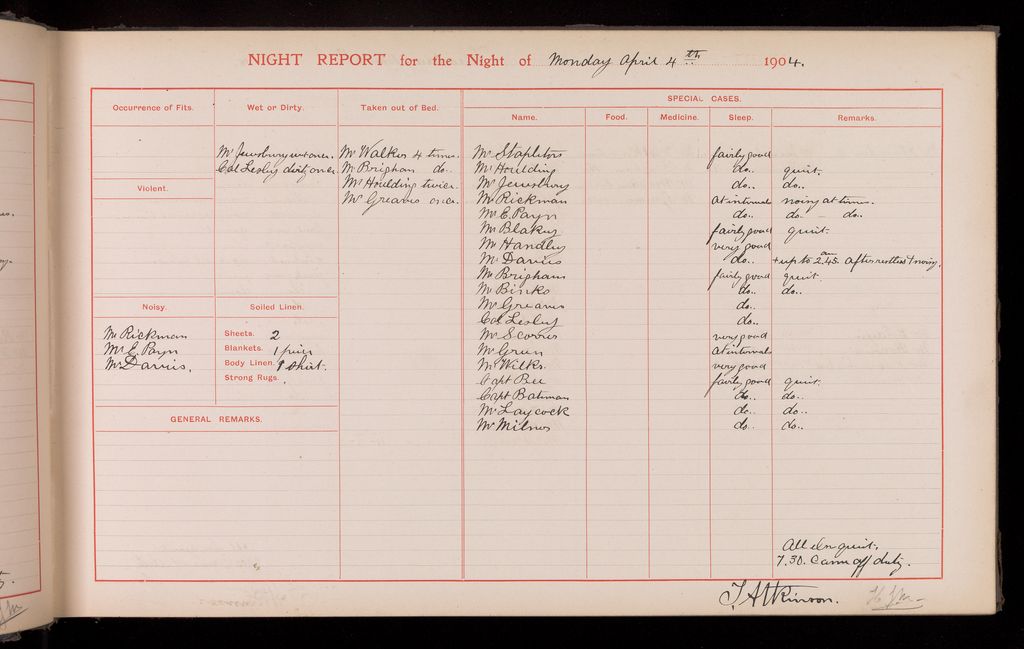 NIGHT REPORT for the Night of Monday April 4th 1904.
Occurrence of Fits. Wet or Dirty. Taken out of Bed. SPECIAL CASES.
Name. Food. Medicine. Sleep. Remarks.
Mr Jewsbury wet once.
Col Lesley dirty once
Mr Walker 4 times.
Mr Brigham do..
Mr Houlding twice.
Mr Greaves once.
Violent.
Noisy.
Mr Rickman
Mr E. Payn
Mr Davies.
Soiled Linen.
Sheets. 2
Blankets. 1 piece
Body Linen. 1 shirt.
Strong Rugs.
GENERAL REMARKS.
Mr Stapleton fairly good
Mr Houlding do.. quiet.
Mr Jewsbury do.. do..
Mr Rickman at intervals noisy at times.
Mr E. Payn do.. do — do..
Mr Blakey fairly good quiet.
Mr Handley very good
Mr Davies do.. + up to 2.45 am after restless + noisy.
Mr Brigham fairly good quiet.
Mr Binks do.. do..
Mr Greaves do..
Col Lesley do..
Mr Scorres very good
Mr Green at intervals
Mr Wilks very good
Capt Bee fairly good quiet.
Capt Bateman do.. do..
Mr Laycock do.. do..
Mr Milnes do.. do..
All quiet.
7.30. Came off duty.
T. Atkinson.